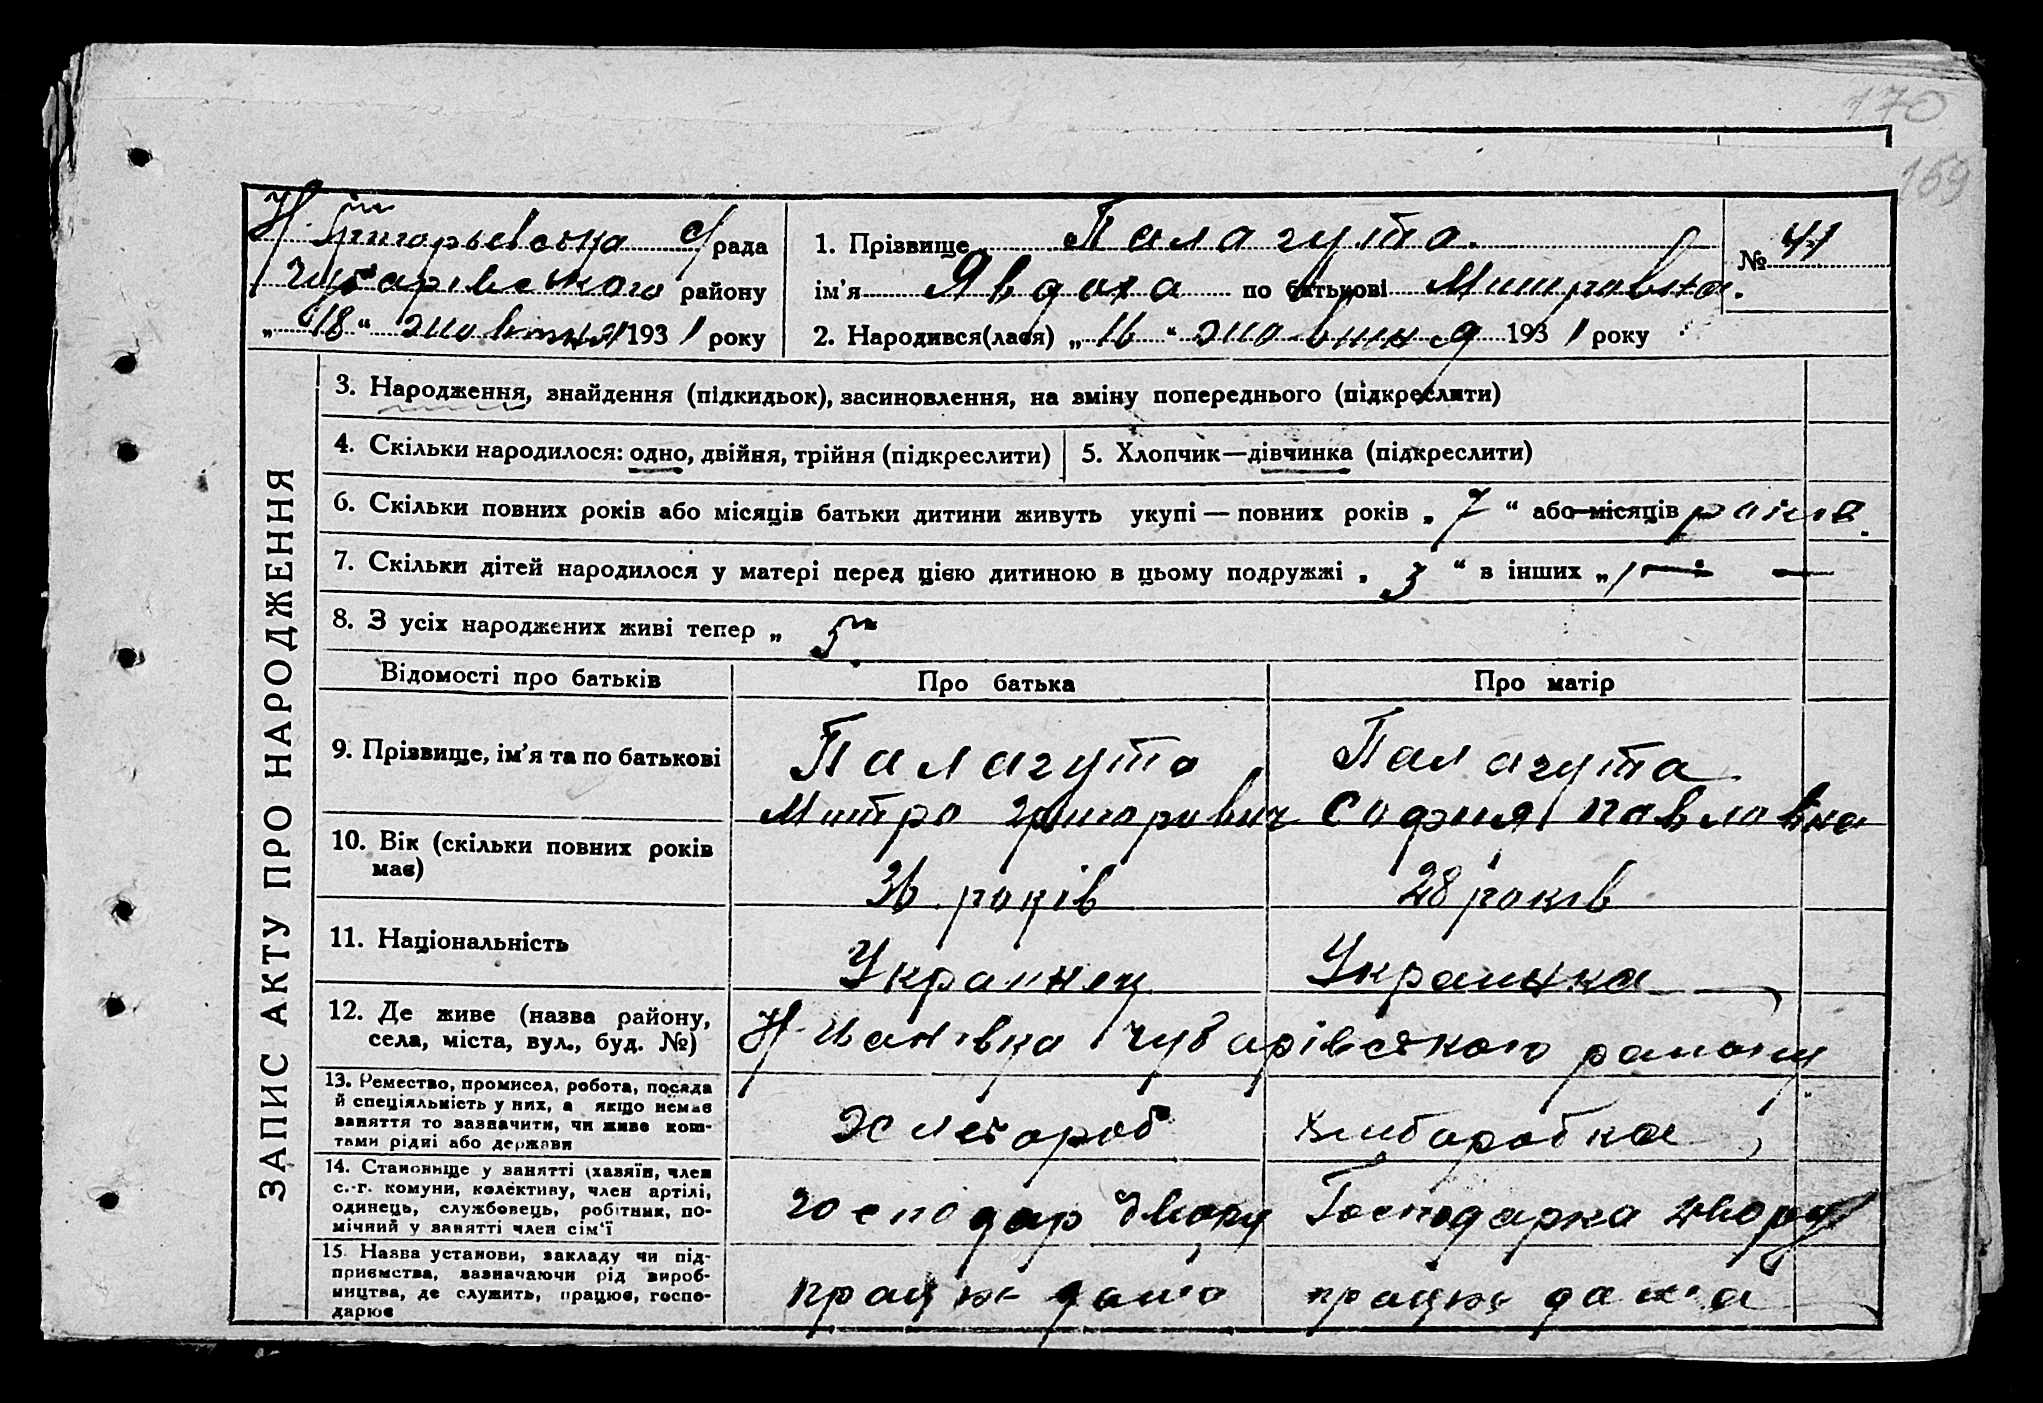 170
159
Н. Григорьевська с/рада
Чубарівського району
„18“ жовтня 1931 року
1. Прізвище Палагута.
№ 41
ім'я Явдоха по батькові Митровна.
2. Народився(лася) „16“ жовтня 1931 року
ЗАПИС АКТУ ПРО НАРОДЖЕННЯ
3. Народження, знайдення (підкидьок), засиновлення, на зміну попереднього (підкреслити)
4. Скільки народилося: одно, двійня, трійня (підкреслити)
5. Хлопчик—дівчинка (підкреслити)
6. Скільки повних років або місяців батьки дитини живуть укупі — повних років „7“ або місяців років
7. Скільки дітей народилося у матері перед цією дитиною в цьому подружжі „3“ в інших „ —
8. З усіх народжених живі тепер „
Відомості про батьків
Про батька
Про матір
9. Прізвище, ім'я та по батькові
Палагута
Митро Григорович
Палагута
София Павловна
10. Вік (скільки повних років
має)
36 років
28 років
11. Національність
Украинец
Украинка
12. Де живе (назва району,
села, міста, вул., буд. №)
Н-Иванівка Чубарівського району
13. Ремество, промисел, робота, посада
й спеціяльність у них, а якщо немає
заняття то зазначити, чи живе кош-
тами рідні або держави
Хлебороб
Хлиборобка
14. Становище у занятті (хазяїн, член
с.-г. комуни, колективу, член артілі,
одинець, службовець, робітник, по-
мічний у занятті член сім'ї
господар двору
Господарка двору
15. Назва установи, закладу чи під-
приємства, зазначаючи рід вироб-
ництва, де служить, працює, госпо-
дарює
працює дома
працює дома